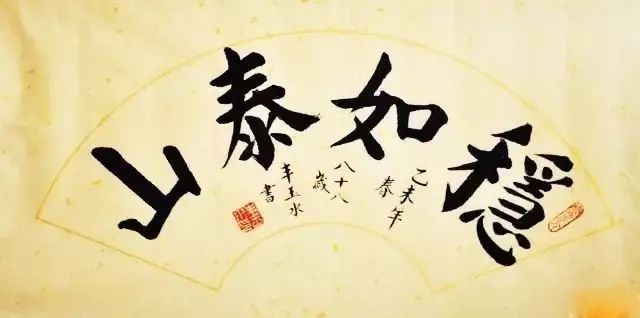 穩如泰山
乙未年
春
八十八
歲
丰玉水
書